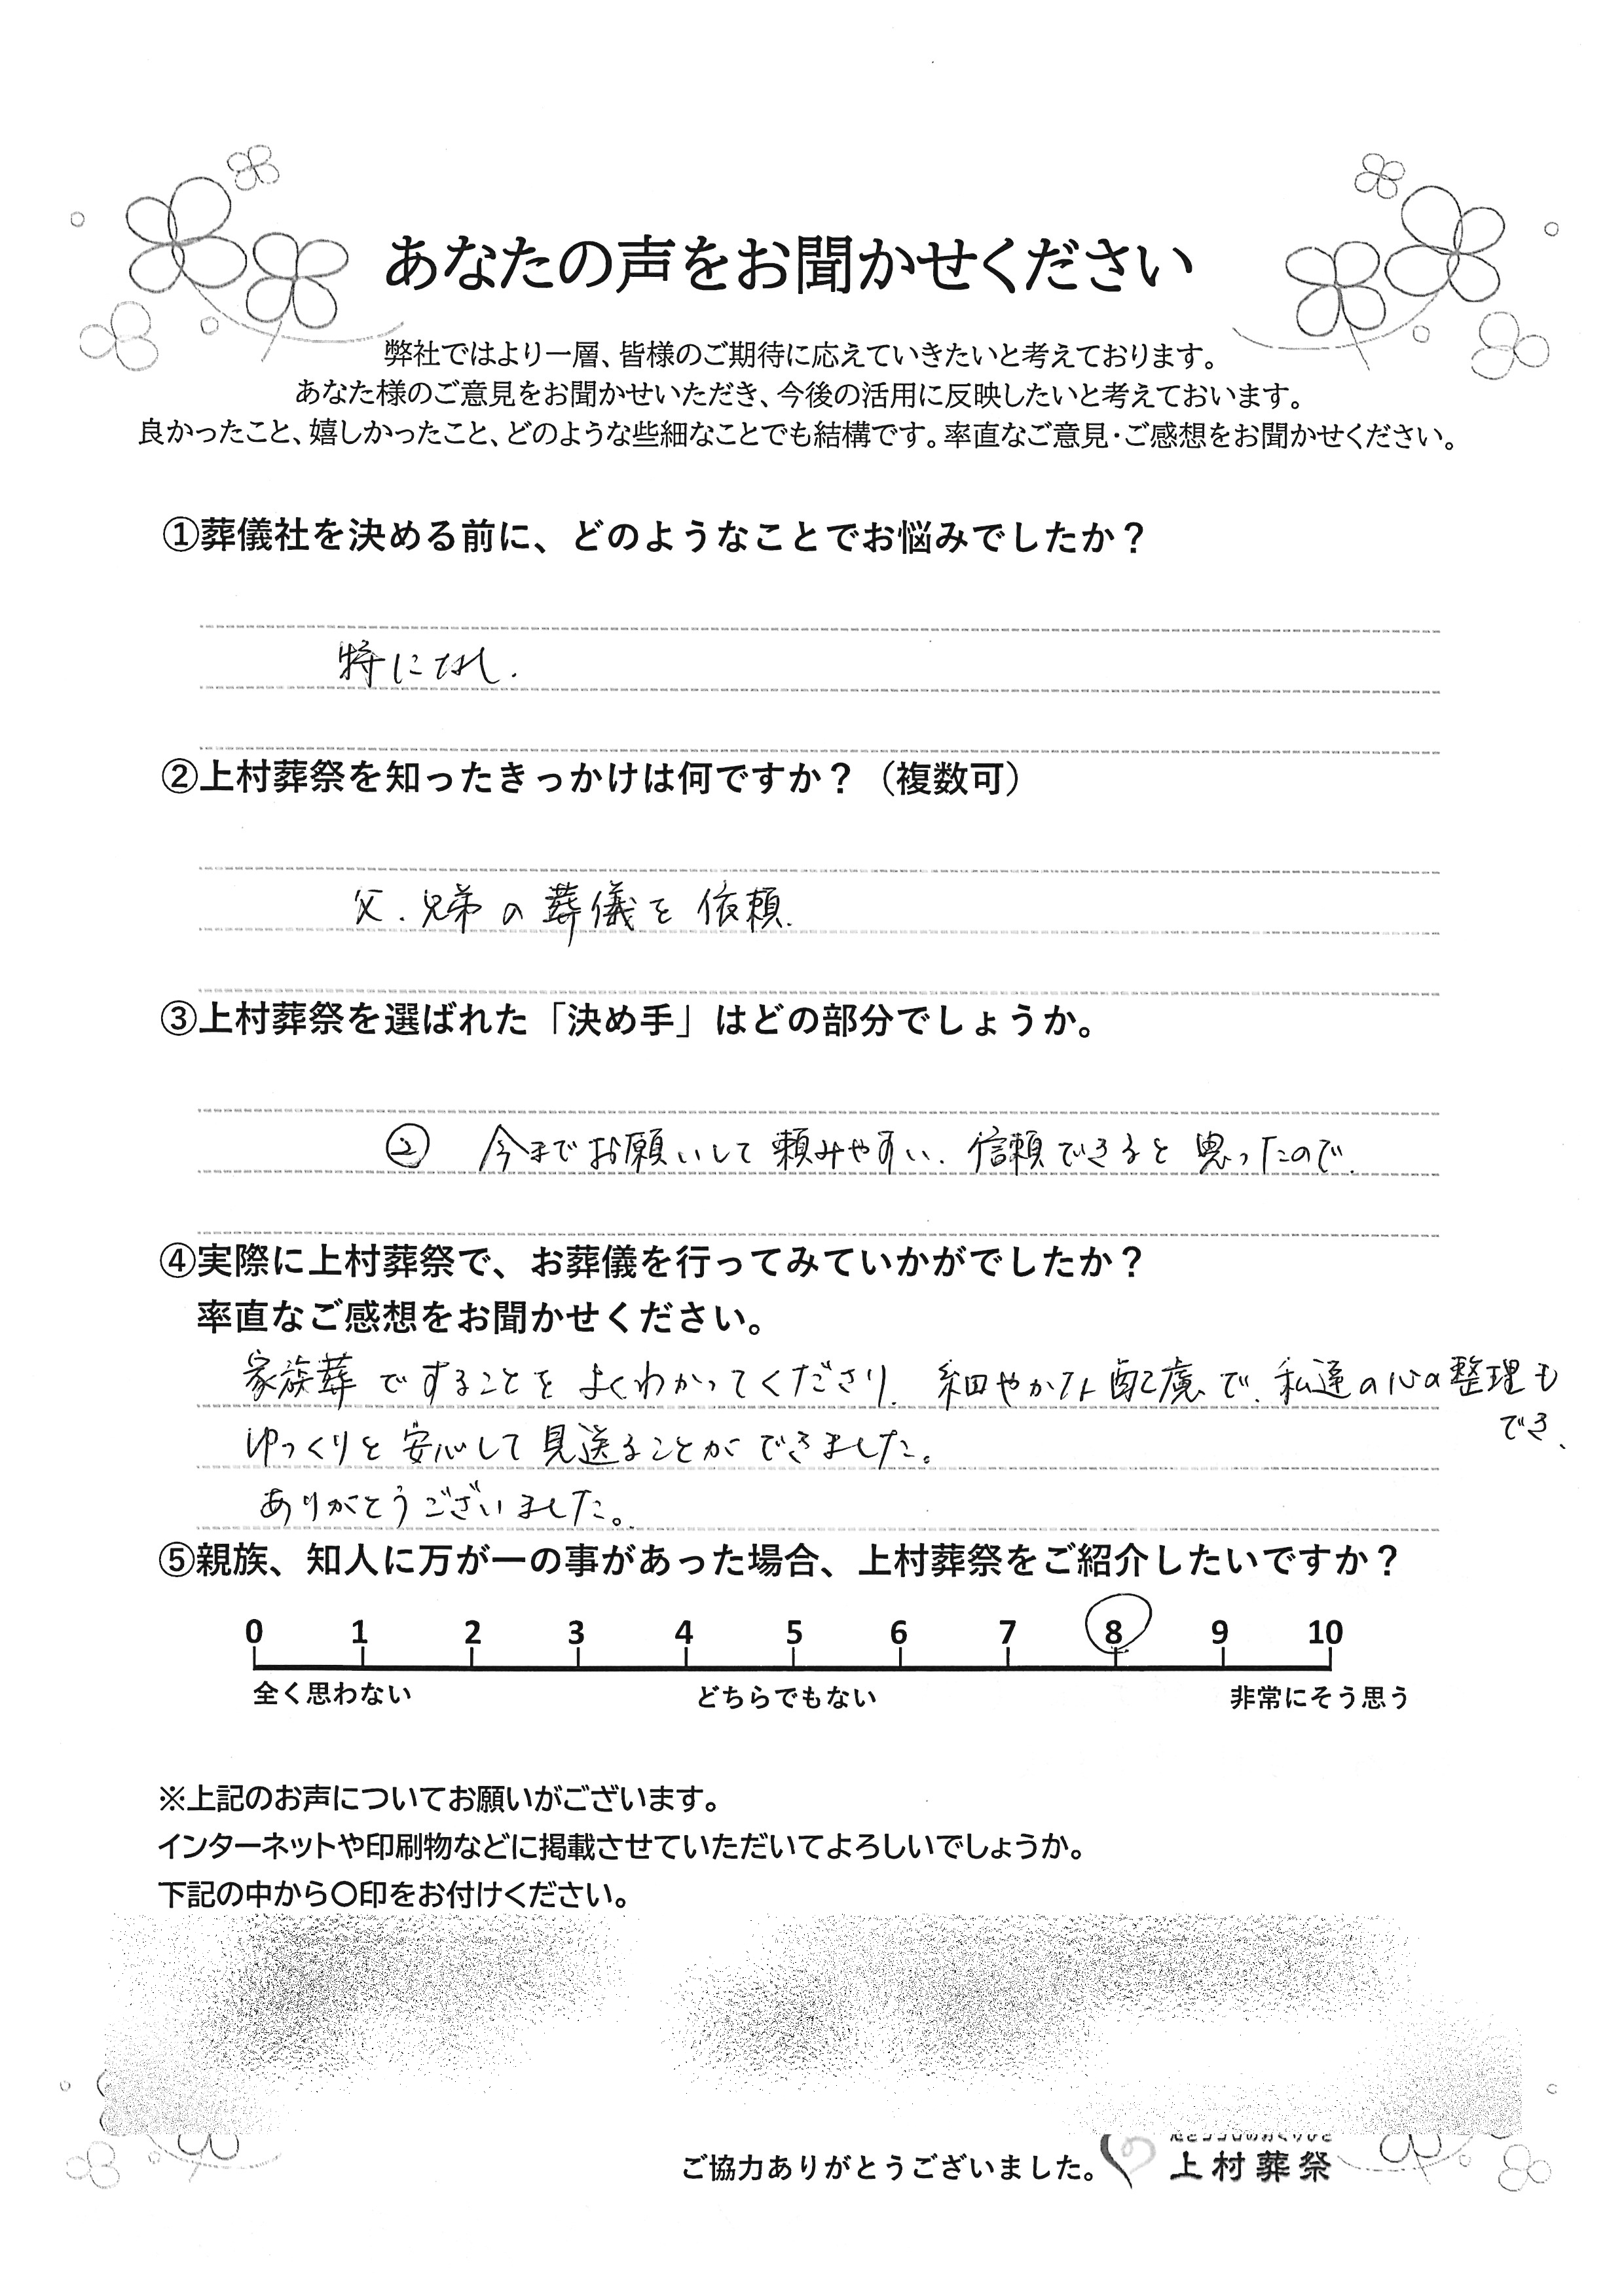 あなたの声をお聞かせください
弊社ではより一層、皆様のご期待に応えていきたいと考えております。
あなた様のご意見をお聞かせいただき、今後の活用に反映したいと考えておいます。
良かったこと、嬉しかったこと、どのような些細なことでも結構です。率直なご意見・ご感想をお聞かせください。
①葬儀社を決める前に、どのようなことでお悩みでしたか？
特になし.
②上村葬祭を知ったきっかけは何ですか？（複数可）
父.兄弟の葬儀を依頼.
③上村葬祭を選ばれた「決め手」はどの部分でしょうか。
② 今までお願いして頼みやすい.信頼できると思ったので.
④実際に上村葬祭で、お葬儀を行ってみていかがでしたか？
率直なご感想をお聞かせください。
家族葬ですることをよくわかってくださり.細やかな配慮で.私達の心の整理も
でき、
ゆっくりと安心して見送ることができました。
ありがとうございました。
⑤親族、知人に万が一の事があった場合、上村葬祭をご紹介したいですか？
0 1 2 3 4 5 6 7 8 9 10
全く思わない どちらでもない 非常にそう思う
※上記のお声についてお願いがございます。
インターネットや印刷物などに掲載させていただいてよろしいでしょうか。
下記の中から〇印をお付けください。
ご協力ありがとうございました。
上村葬祭